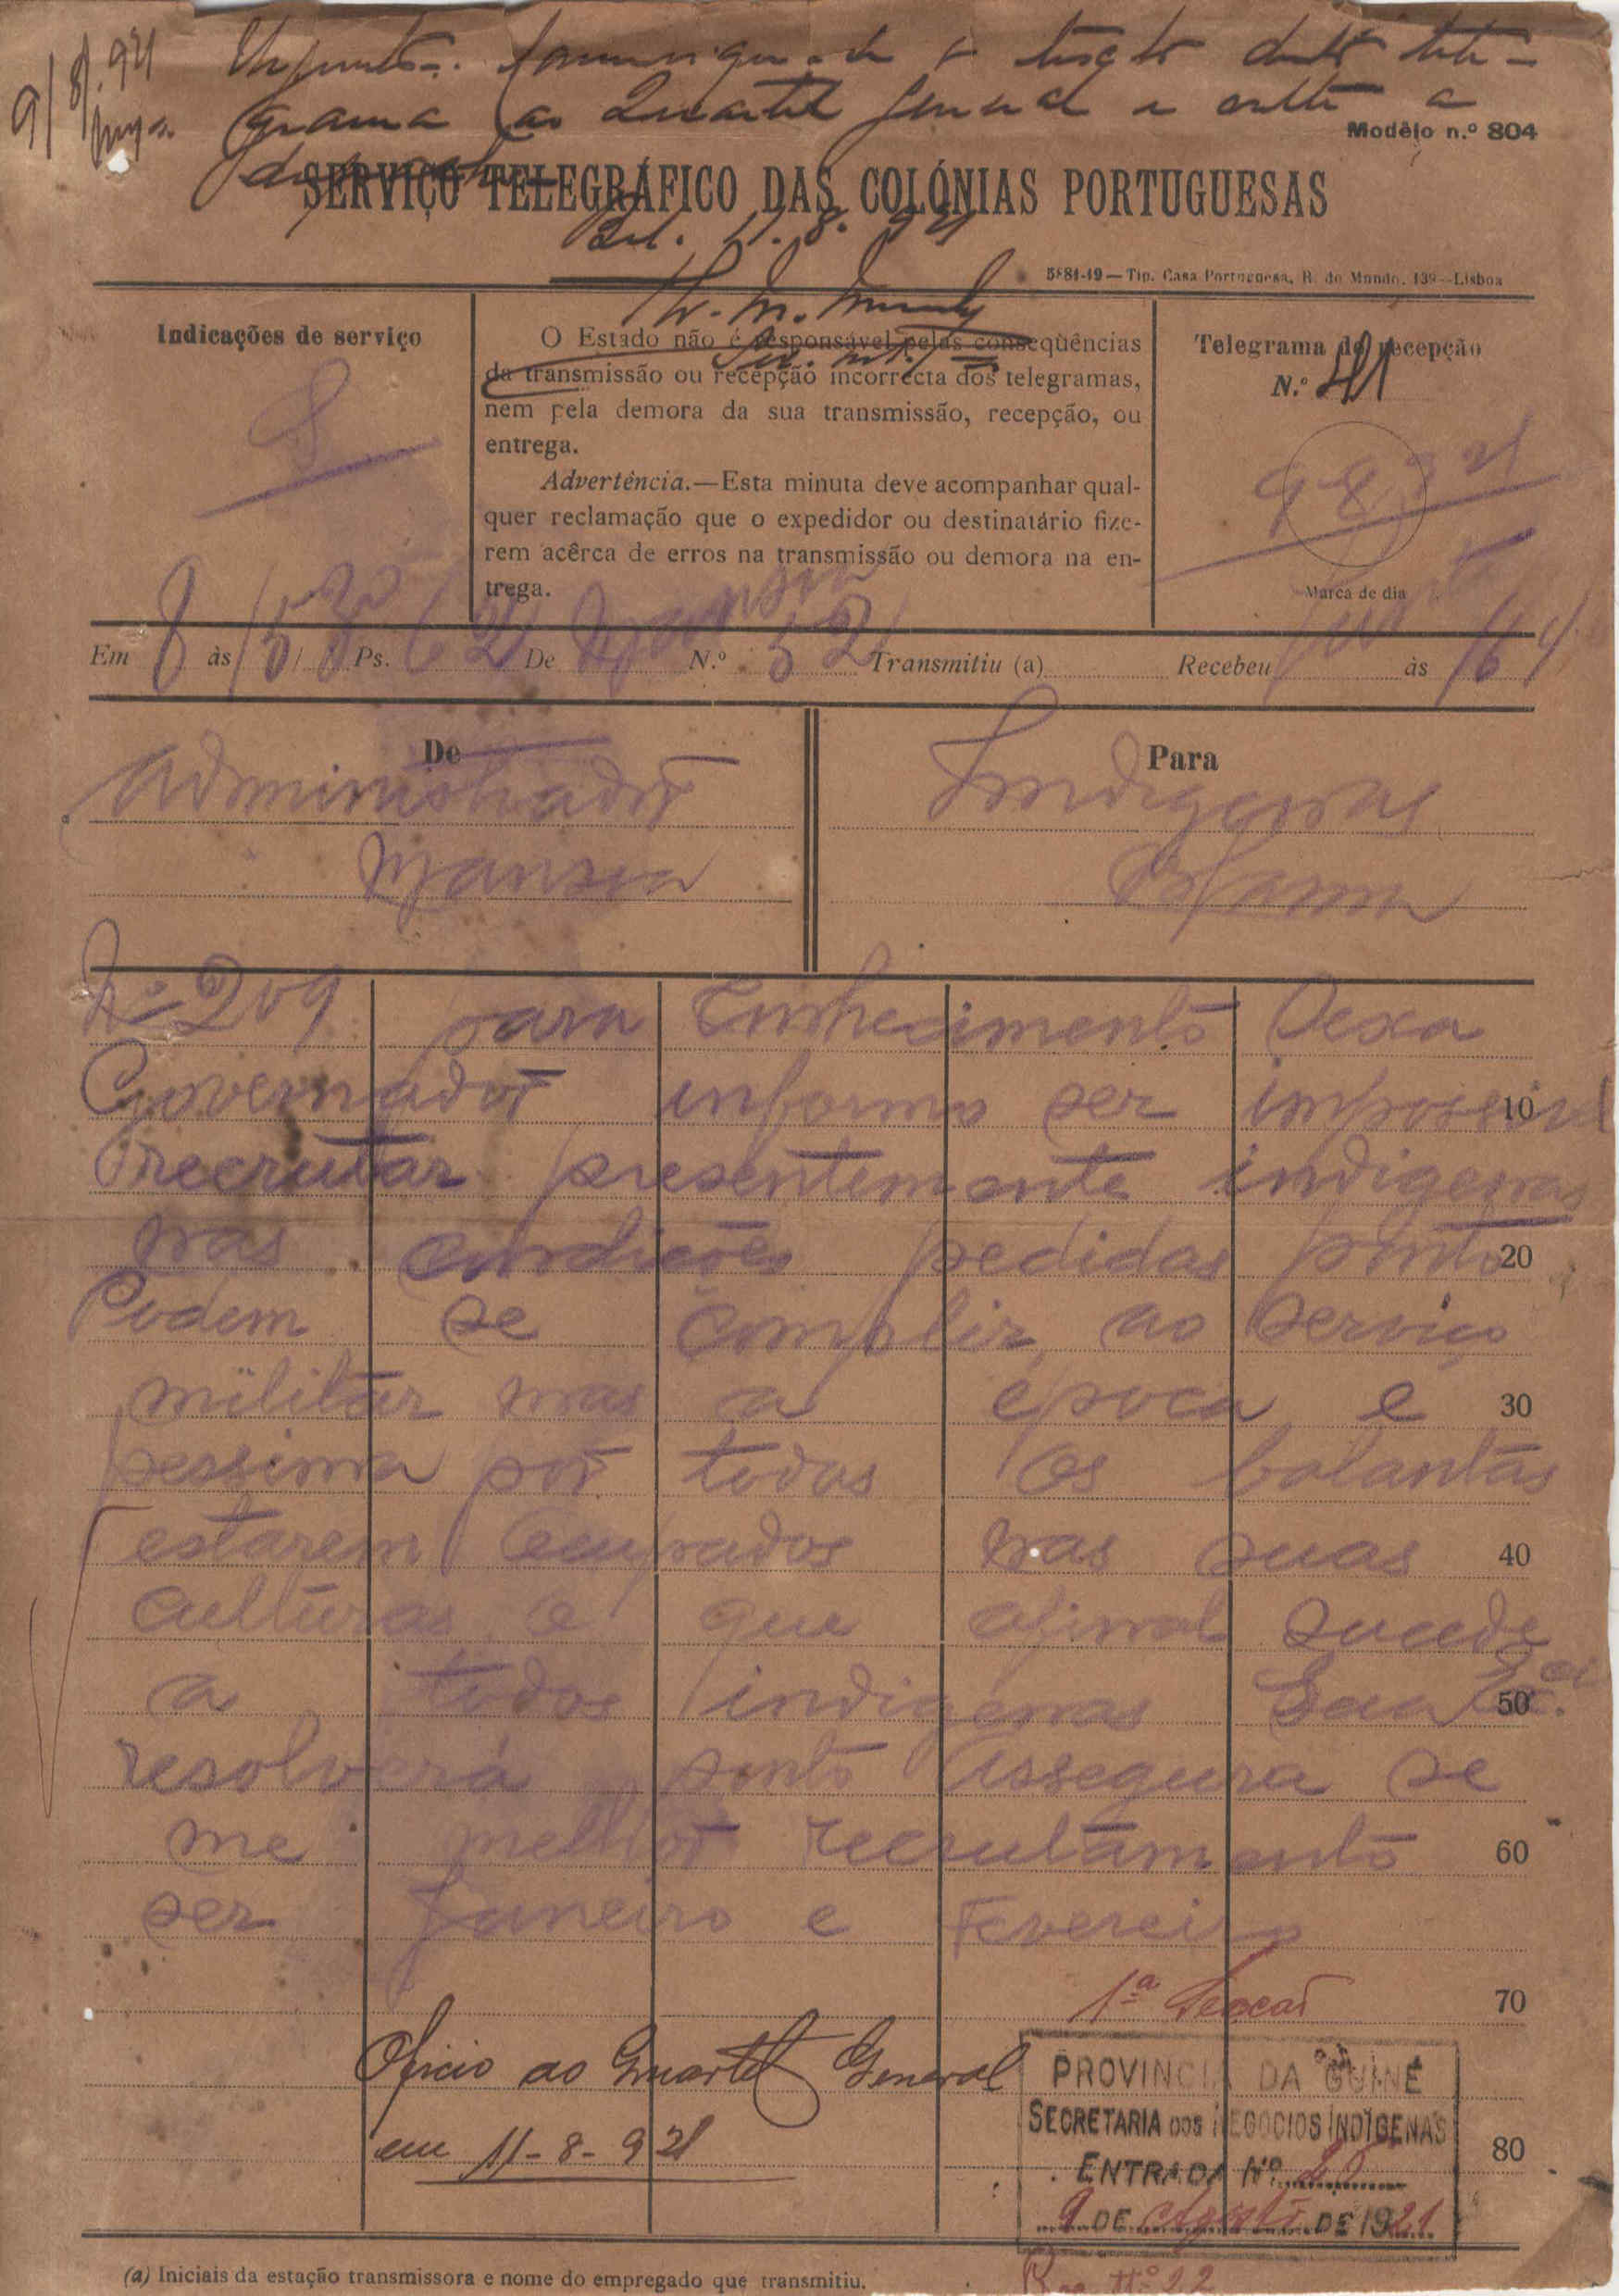 9/8/921
grama ao Quartel General e
Modêlo n.º 804
SERVIÇO TELEGRÁFICO DAS COLÓNIAS PORTUGUESAS
11.8.921
5881-19—Tip. Casa Portuguesa, R. do Mundo, 139—Lisboa
Indicações de serviço
O Estado não é responsável pelas conseqüências
da transmissão ou recepção incorrecta dos telegramas,
nem pela demora da sua transmissão, recepção, ou
entrega.
Advertência.—Esta minuta deve acompanhar qual-
quer reclamação que o expedidor ou destinatário fize-
rem acêrca de erros na transmissão ou demora na en-
trega.
Telegrama de recepção
N.º
9 8 921
Marca de dia
Em 8 às 15/30 Ps. 62 De Mansoa N.º 52 Transmitiu (a) Recebeu às
De
Administrador
Mansoa
Para
Indigenas
Bolama
Nº 209 para Conhecimento Sexa
Governador informo ser impossivel
10
recrutar presentemente indigenas
nas condições pedidas ponto
20
Podem se compelir ao serviço
militar mas a epoca e
30
pessima por todos os balantas
estarem ocupados nas suas
40
culturas o que afinal sucede
a todos indigenas Sua Exª
50
resolverá ponto Assegura se
me melhor recrutamento
60
ser Janeiro e Fevereiro
1ª Secção
70
Oficio ao Quartel General
em 11-8-921
80
PROVINCIA DA GUINÉ
SECRETARIA DOS NEGOCIOS INDIGENAS
ENTRADA Nº
9 DE Agosto DE 1921
(a) Iniciais da estação transmissora e nome do empregado que transmitiu.
Nº 22